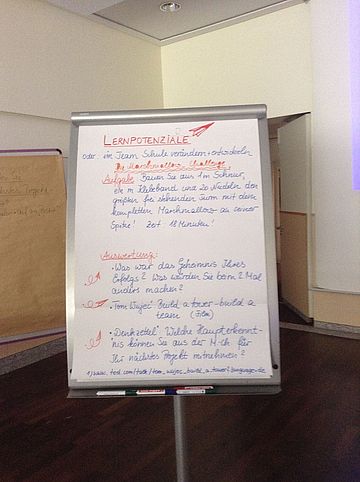 LERNPOTENZIALE
oder: ein Team Schule verändern + entwickeln
Die Marshmallow-Challenge
Aufgabe: Bauen Sie aus 1m Schnur,
1m Klebeband und 20 Nudeln den
größten frei stehenden Turm mit dem
kompletten Marshmallow an seiner
Spitze! Zeit: 18 Minuten!
Auswertung:
• Was war das Geheimnis Ihres
Erfolgs? Was würden Sie beim 2. Mal
anders machen?
• Tom Wujec: Build a tower - build a
team (Film)
• "Denkzettel": Welche Haupterkennt-
nis können Sie aus der M-ch. für
Ihr nächstes Projekt mitnehmen?
1) www.ted.com/talk/tom_wujec_build_a_tower?language=de